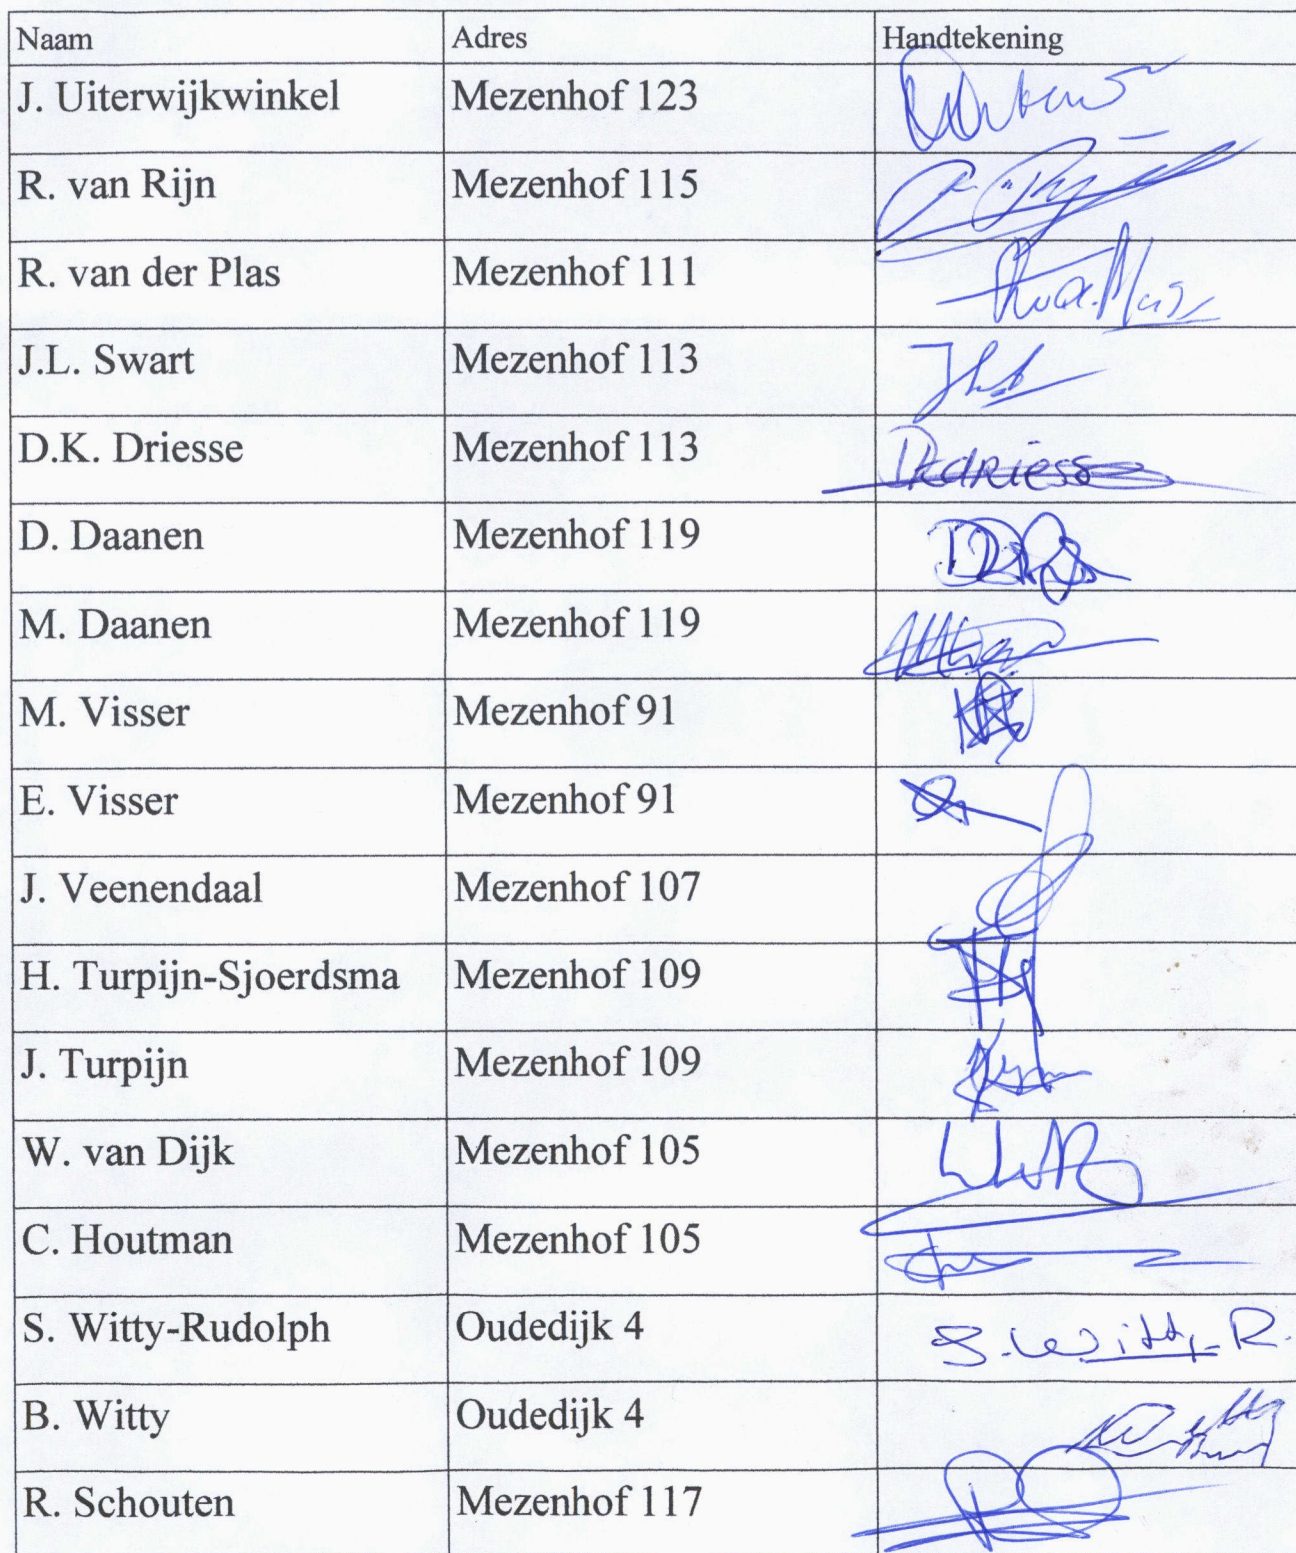 Naam Adres Handtekening
J. Uiterwijkwinkel Mezenhof 123
R. van Rijn Mezenhof 115
R. van der Plas Mezenhof 111
J.L. Swart Mezenhof 113
D.K. Driesse Mezenhof 113
D. Daanen Mezenhof 119
M. Daanen Mezenhof 119
M. Visser Mezenhof 91
E. Visser Mezenhof 91
J. Veenendaal Mezenhof 107
H. Turpijn-Sjoerdsma Mezenhof 109
J. Turpijn Mezenhof 109
W. van Dijk Mezenhof 105
C. Houtman Mezenhof 105
S. Witty-Rudolph Oudedijk 4 S. Witty-R.
B. Witty Oudedijk 4
R. Schouten Mezenhof 117